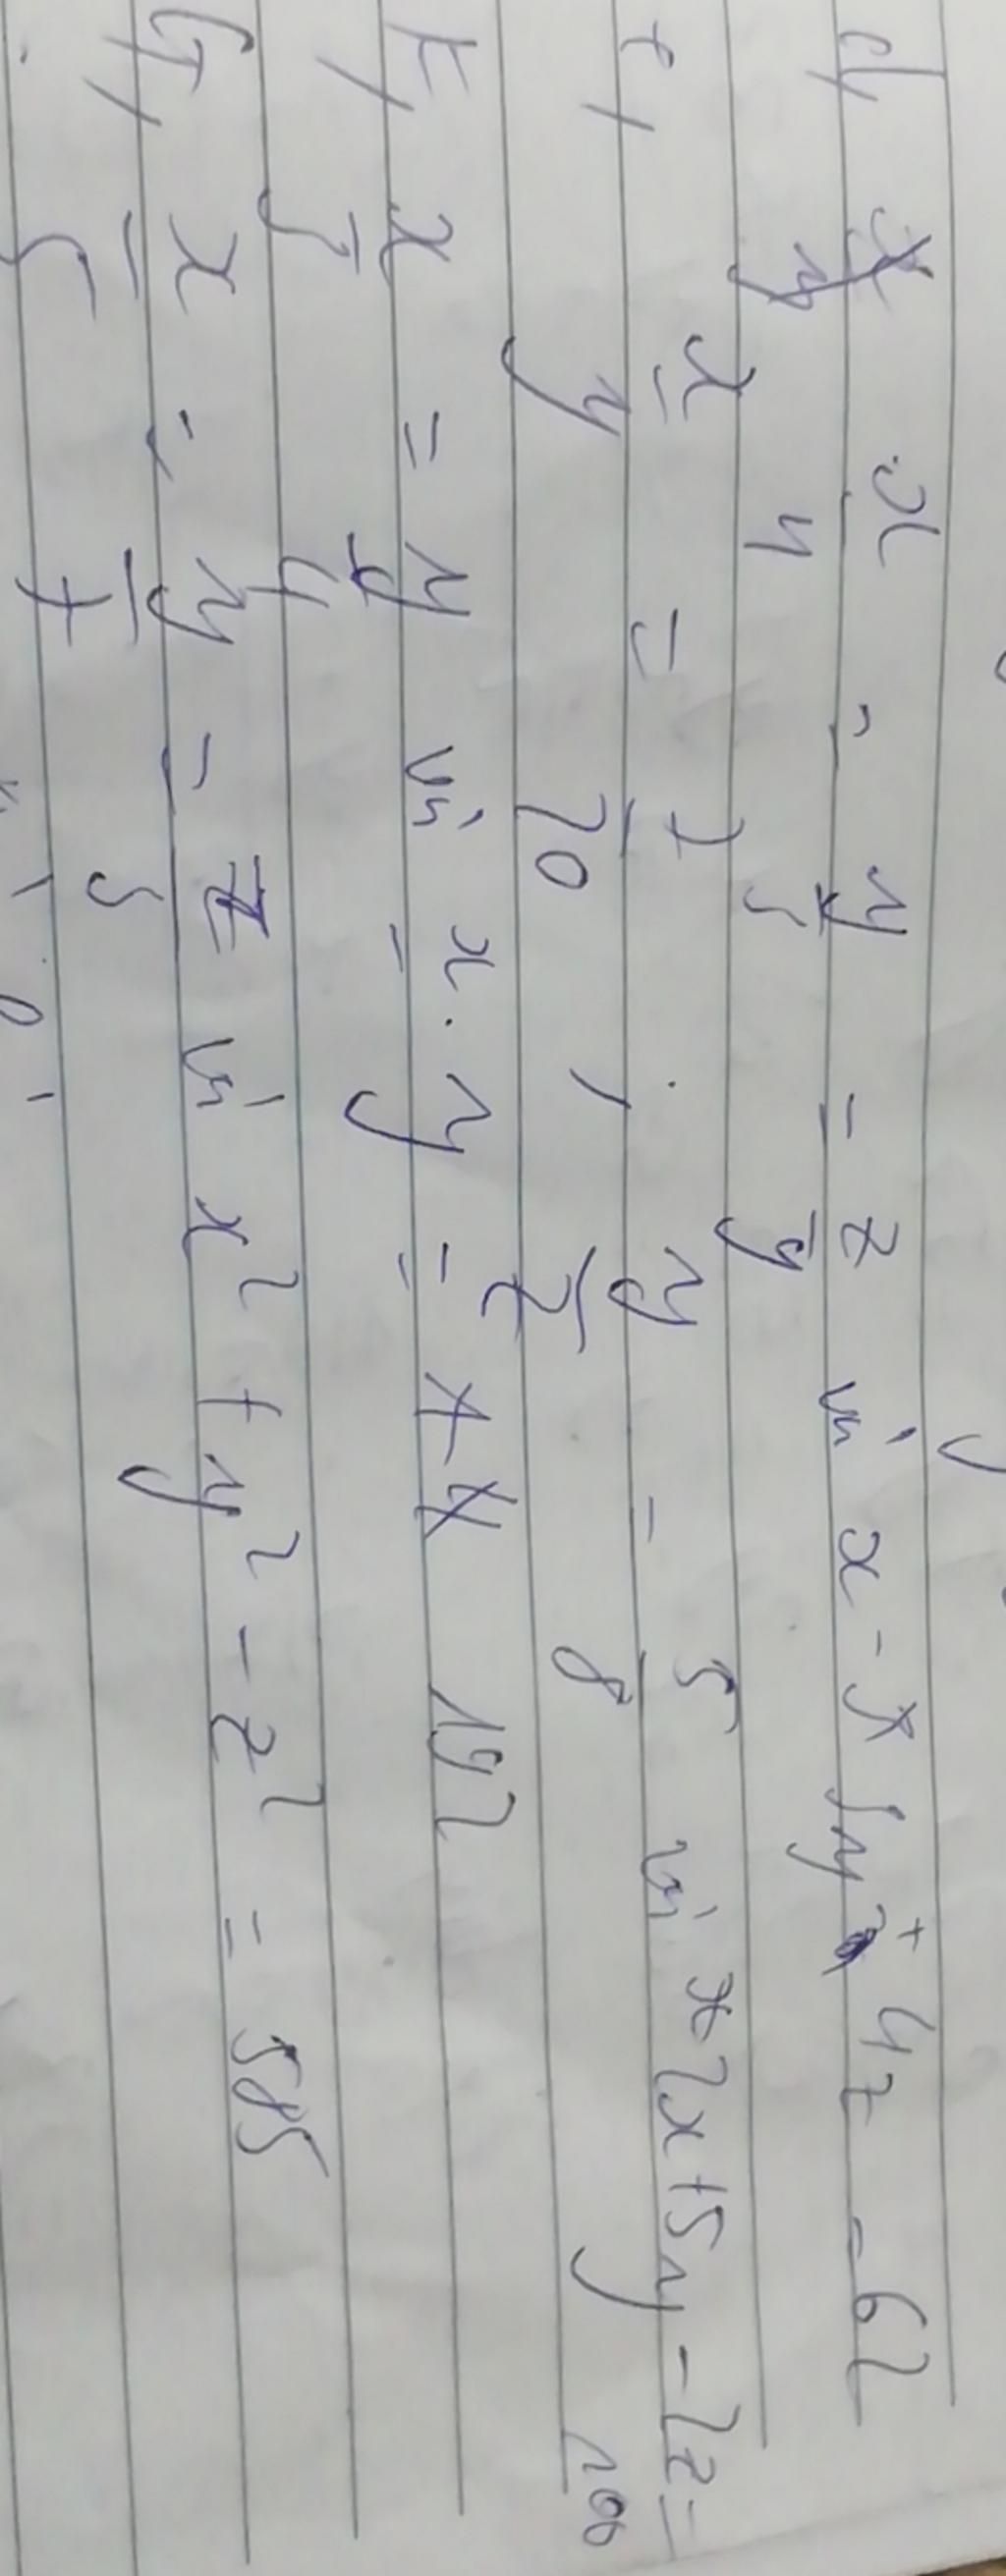 d, x/4 = y/3 = z/9 với x - 3y + 4z = 62
e, x/y = 7/20 ; y/z = 5/8 với 2x + 5y - 2z = 100
F, x/3 = y/4 với x . y = 192
G, x/5 = y/7 = z/3 với x² + y² - z² = 585